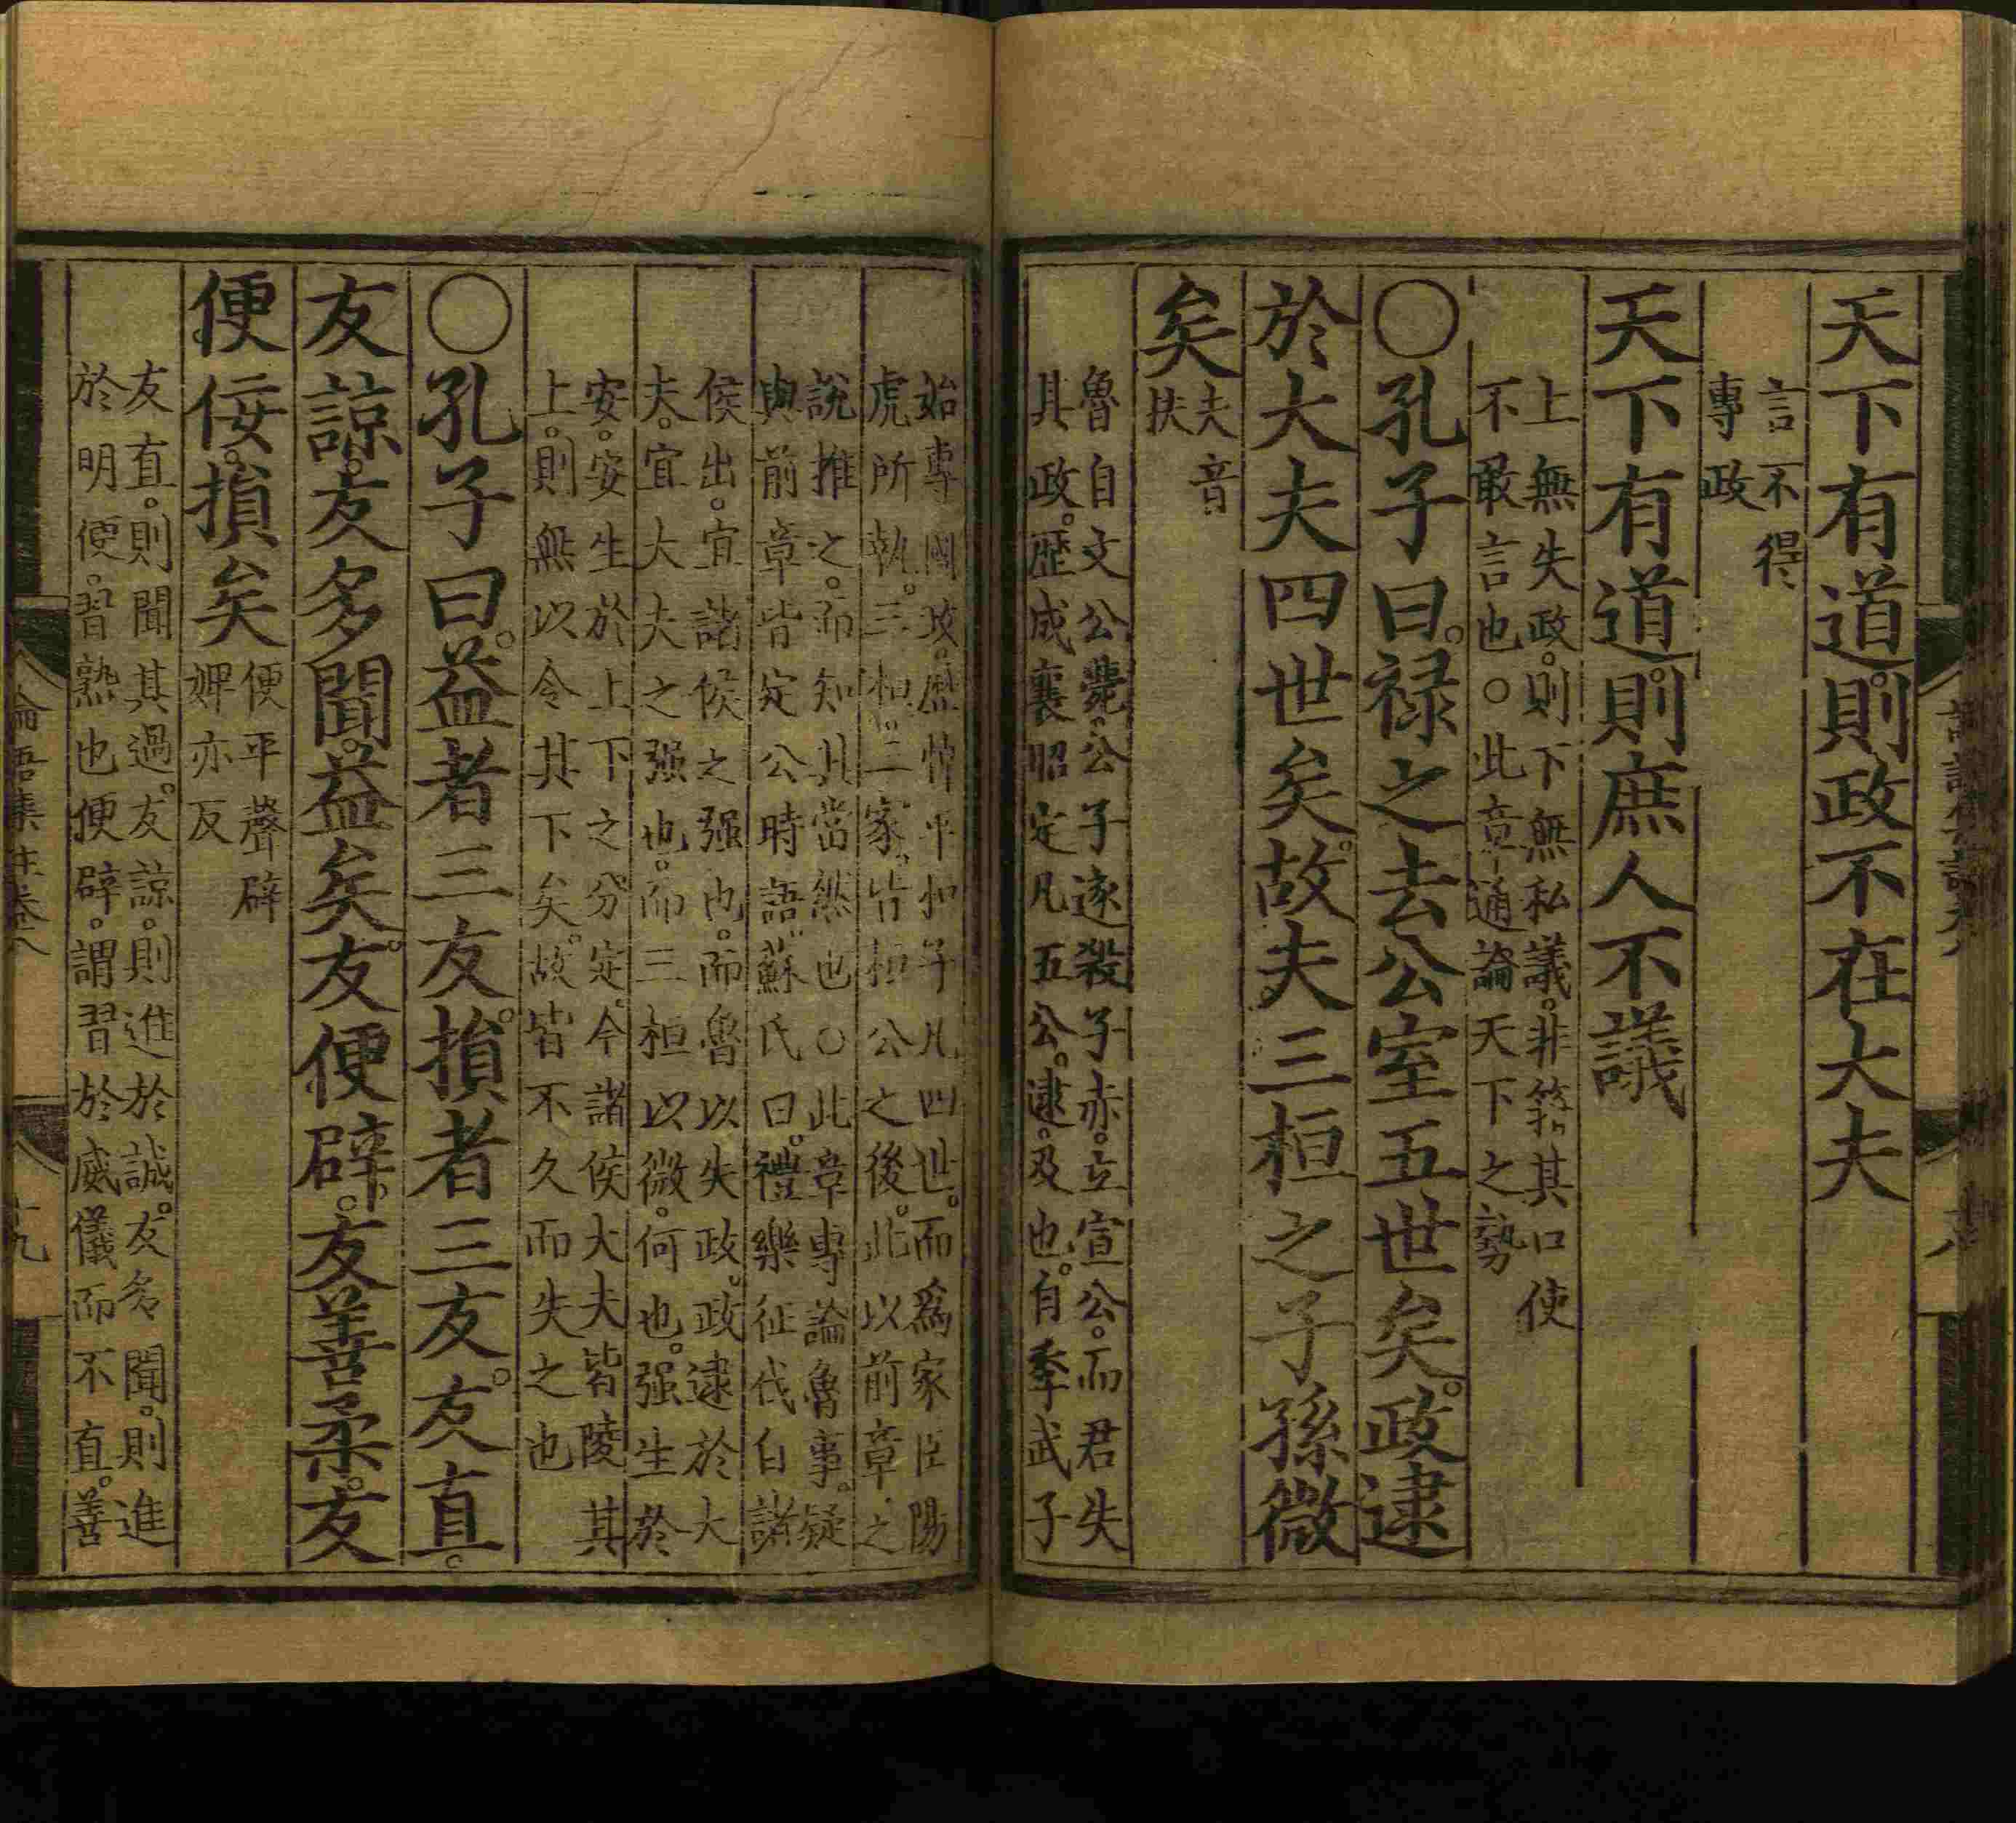 天下有道。則政不在大夫
言不得
專政
天下有道。則庶人不議
上無失政。則下無私議。非箝其口使
不敢言也○此章通論天下之勢
○孔子曰。禄之去公室五世矣。政逮
於大夫四世矣。故夫三桓之子孫微
矣
夫音
扶
魯自文公薨。公子遂殺子赤。立宣公。而君失
其政。歷成襄昭定凡五公。逮。及也。自季武子
始專國政。歷悼平桓子凡四世。而爲家臣陽
虎所執。三桓。三家。皆桓公之後。此以前章之
說推之。而知其當然也○此章專論魯事。疑
與前章皆定公時語。蘇氏曰。禮樂征伐自諸
侯出。宜諸侯之强也。而魯以失政。政逮於大
夫。宜大夫之强也。而三桓以微。何也。强生於
安。安生於上下之分定。今諸侯大夫皆陵其
上。則無以令其下矣。故皆不久而失之也
○孔子曰。益者三友。損者三友。友直。
友諒。友多聞。益矣。友便辟。友善柔。友
便佞。損矣
便平聲辟
婢亦反
友直。則聞其過。友諒。則進於誠。友多聞。則進
於明便。習熟也便辟。謂習於威儀而不直。善
論語集註卷八
十九